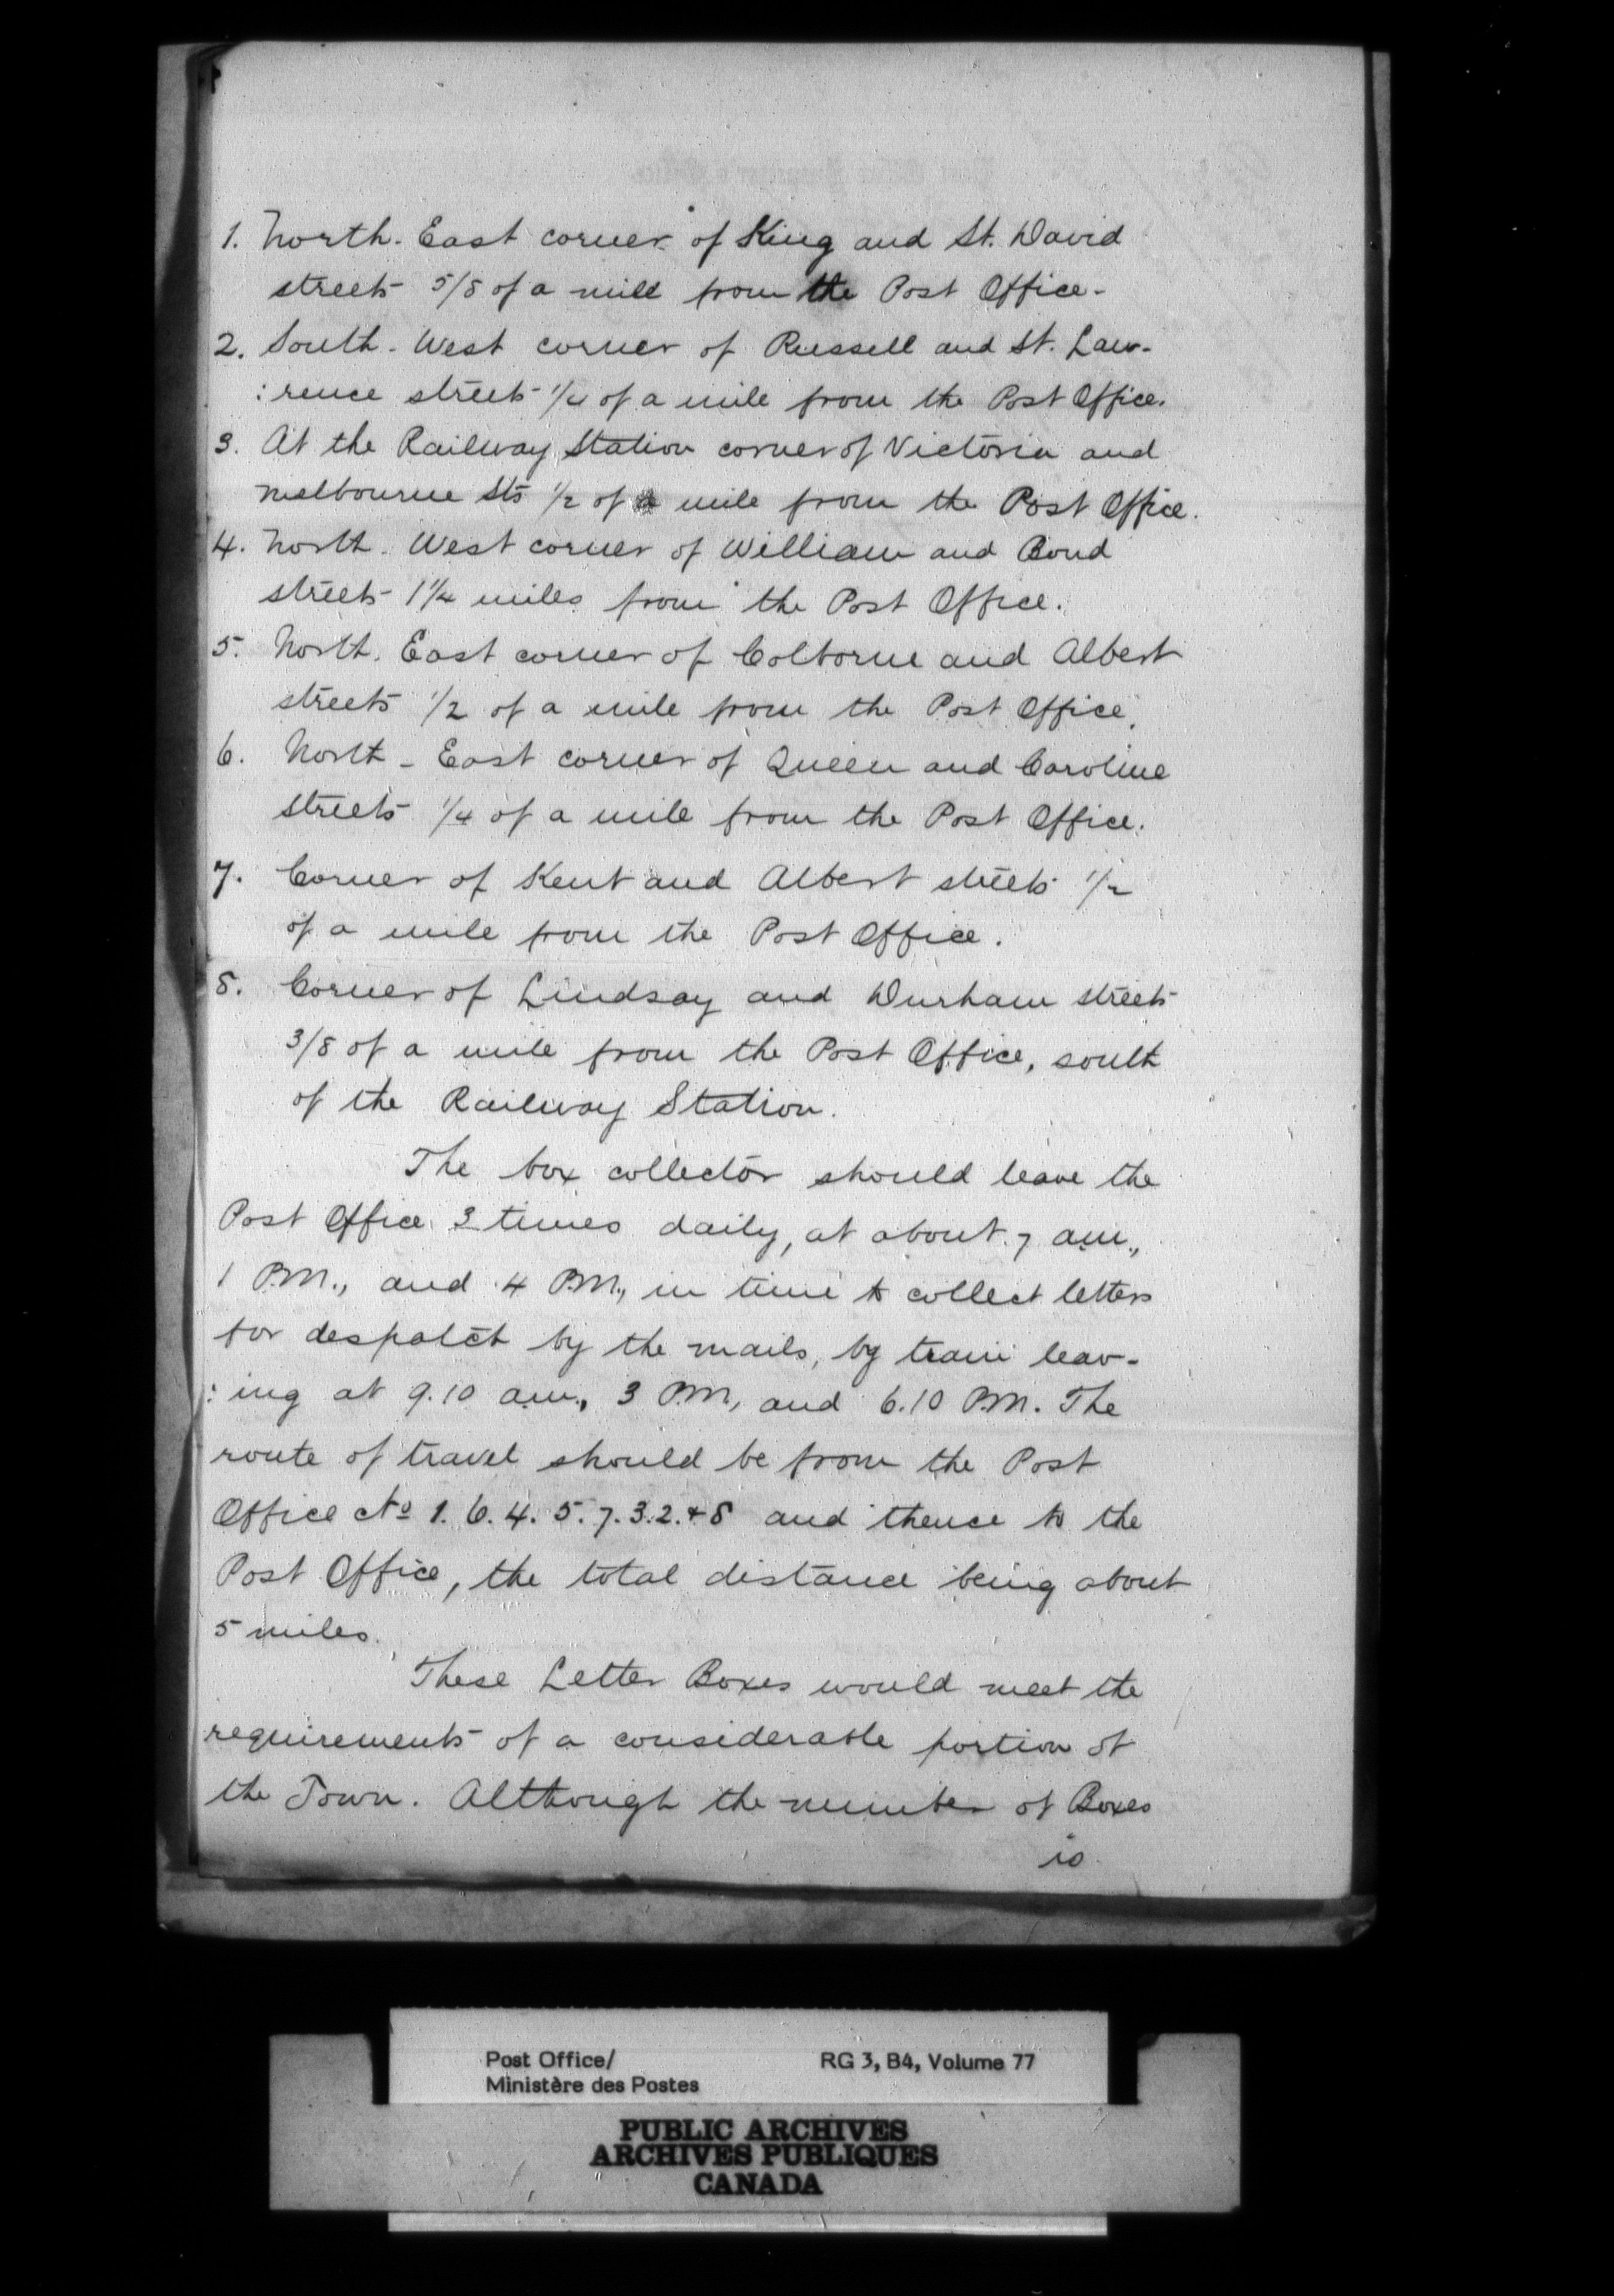 1. North-East corner of King and St. David
streets 5/8 of a mile from the Post Office-
2. South-West corner of Russell and St. Law-
:rence streets 1/4 of a mile from the Post Office.
3. At the Railway Station corner of Victoria and
Melbourne Sts 1/2 of a mile from the Post Office.
4. North-West corner of William and Bond
streets 1 1/4 miles from the Post Office.
5. North-East corner of Colborne and Albert
streets 1/2 of a mile from the Post Office.
6. North-East corner of Queen and Caroline
streets 1/4 of a mile from the Post Office.
7. Corner of Kent and Albert streets 1/2
of a mile from the Post Office.
8. Corner of Lindsay and Durham streets
3/8 of a mile from the Post Office, south
of the Railway Station.
The box collector should leave the
Post Office 3 times daily, at about 7 am.,
1 P.M., and 4 P.M., in time to collect letters
for despatch by the mails, by train leav-
:ing at 9.10 a.m., 3 P.M, and 6.10 P.M. The
route of travel should be from the Post
Office No 1. 6. 4. 5. 7. 3. 2. & 8 and thence to the
Post Office, the total distance being about
5 miles.
These Letter Boxes would meet the
requirements of a considerable portion of
the Town. Although the number of Boxes
is
Post Office/
Ministère des Postes
RG 3, B4, Volume 77
PUBLIC ARCHIVES
ARCHIVES PUBLIQUES
CANADA